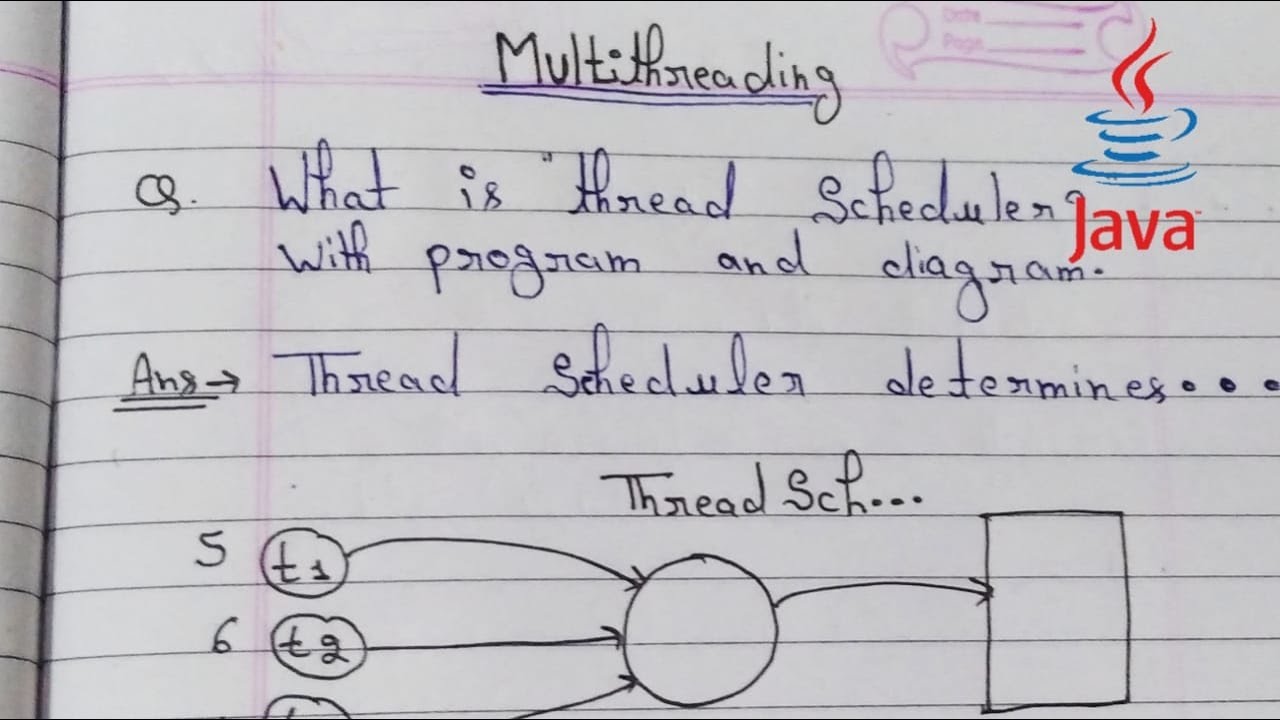 Date
Page
Multithreading
Java
Q. What is "thread Scheduler?
With program and diagram.
Ans → Thread Scheduler determines...
Thread Sch...
5 t1
6 t2